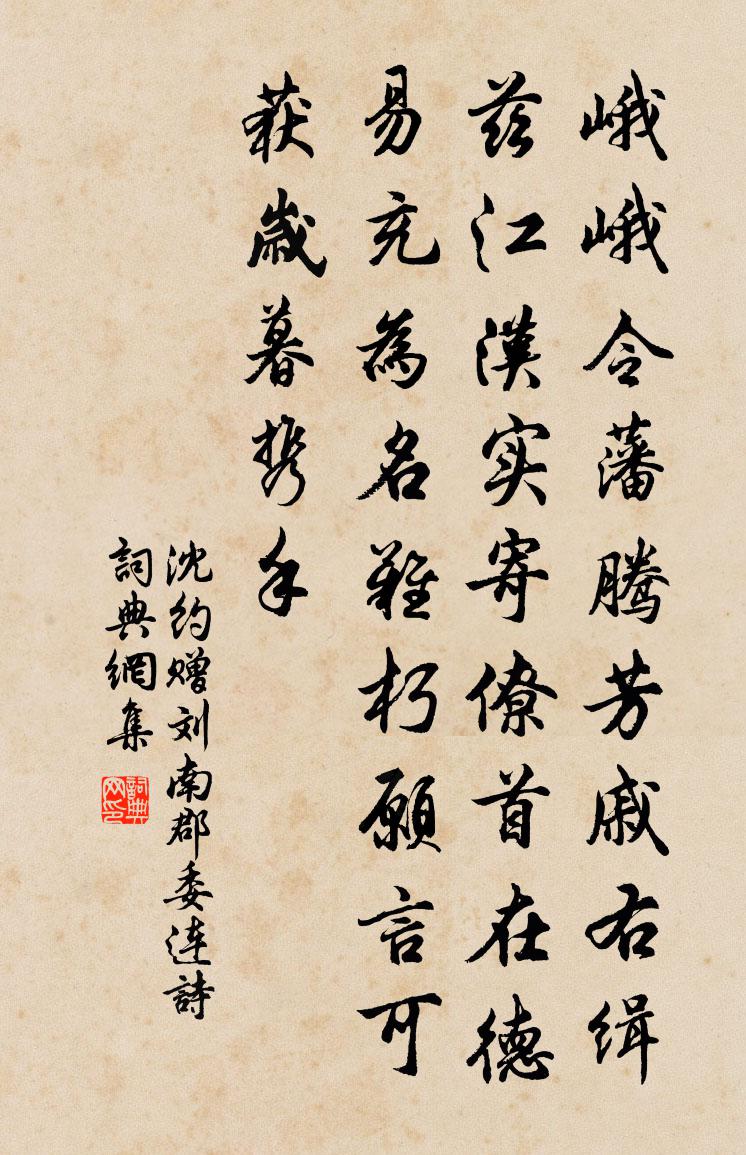 峨峨令藩腾芳戚右缉
兹江漢实寄僚首在德
易充為名難朽願言可
获歲暮携手
沈约赠刘南郡委连詩
詞典網集
詞典网印